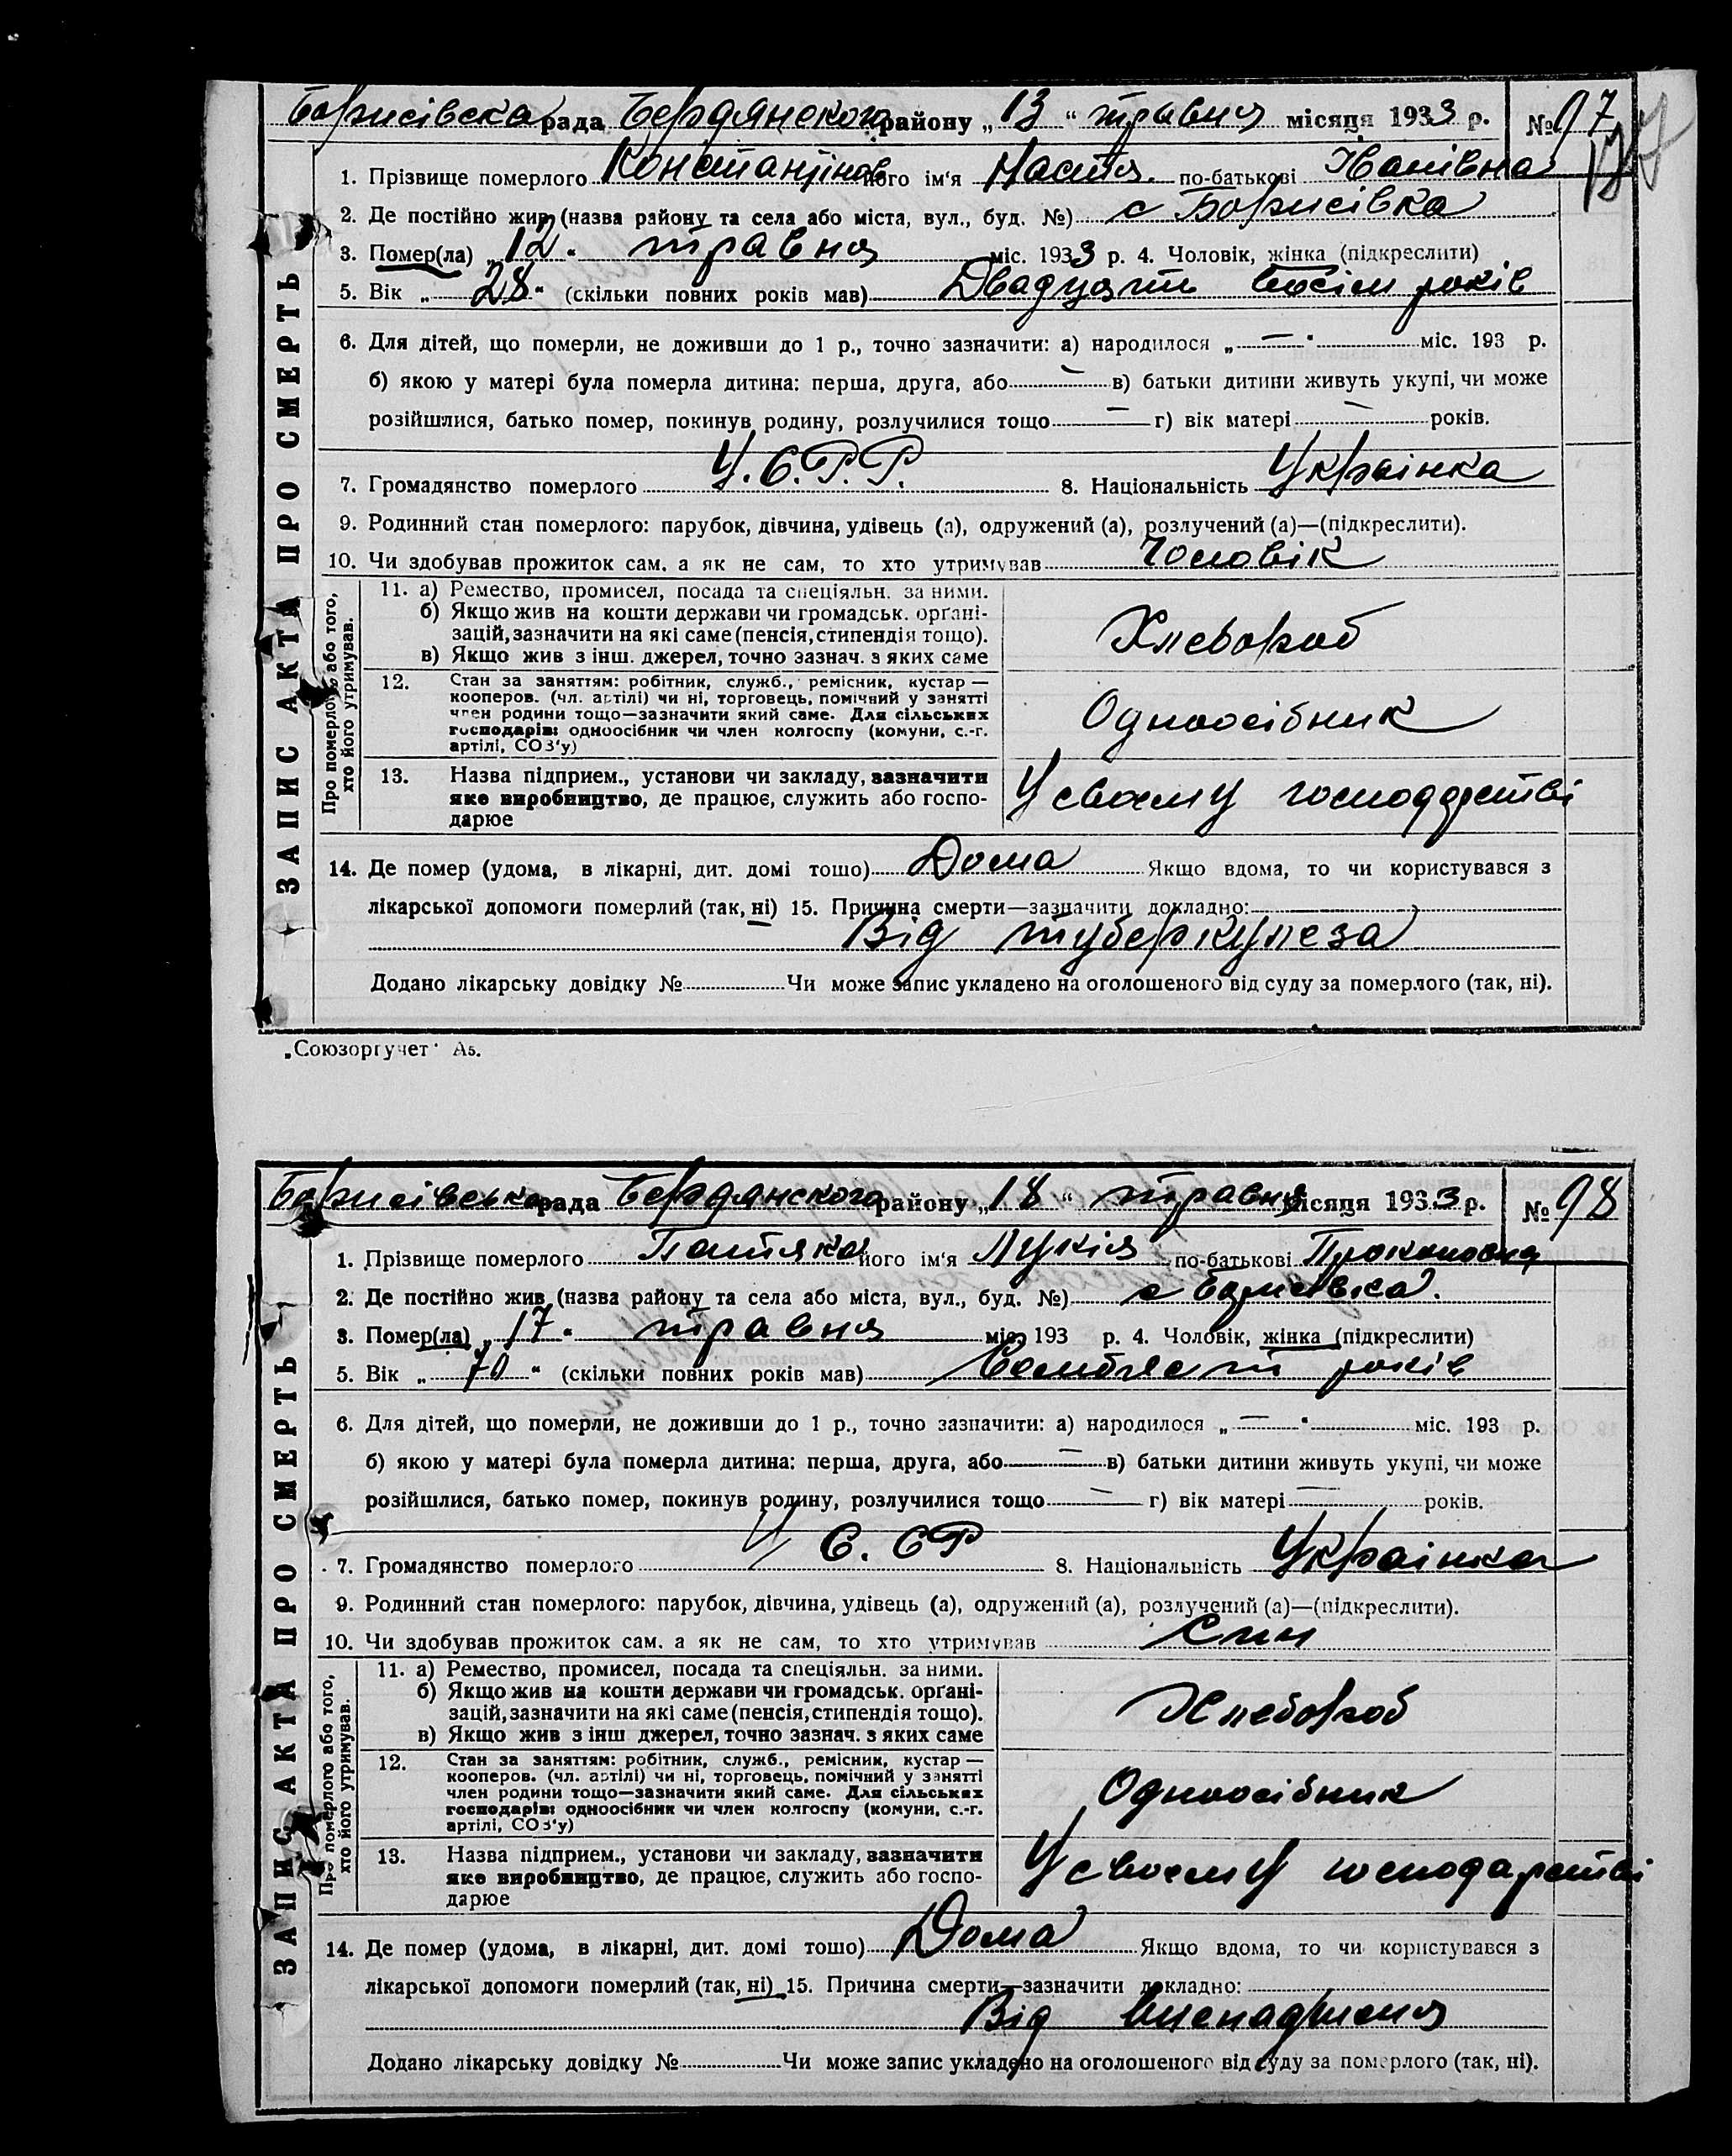 Борисівска рада Бердянского району „13“ травня місяця 1933 р. № 97
127
1. Прізвище померлого Константінов його ім'я Настя по-батькові Іванівна
2. Де постійно жив (назва району та села або міста, вул., буд. №) с Борисівка
3. Помер(ла) „12“ травня міс. 1933 р. 4. Чоловік, жінка (підкреслити)
5. Вік „28“ (скільки повних років мав) Двадцять восім років
6. Для дітей, що померли, не доживши до 1 р., точно зазначити: а) народилося „—“ міс. 193 р.
б) якою у матері була померла дитина: перша, друга, або — в) батьки дитини живуть укупі, чи може
розійшлися, батько помер, покинув родину, розлучилися тощо — г) вік матері — років.
7. Громадянство померлого У.С.Р.Р. 8. Національність Українка
9. Родинний стан померлого: парубок, дівчина, удівець (а), одружений (а), розлучений (а)—(підкреслити).
10. Чи здобував прожиток сам, а як не сам, то хто утримував Чоловік
ЗАПИС АКТА ПРО СМЕРТЬ
Про померлого або того, хто його утримував.
11. а) Ремество, промисел, посада та спеціяльн. за ними.
б) Якщо жив на кошти держави чи громадськ. орґані-
зацій, зазначити на які саме (пенсія, стипендія тощо).
в) Якщо жив з інш. джерел, точно зазнач. з яких саме
Хлебороб
12. Стан за заняттям: робітник, служб., ремісник, кустар—
кооперов. (чл. артілі) чи ні, торговець, помічний у занятті
член родини тощо—зазначити який саме. Для сільських
господарів: одноосібник чи член колгоспу (комуни, с.-г.
артілі, СОЗ'у)
Одноосібник
13. Назва підприєм., установи чи закладу, зазначити
яке виробництво, де працює, служить або госпо-
дарює
У своєму господарстві
14. Де помер (удома, в лікарні, дит. домі тощо) Дома Якщо вдома, то чи користувався з
лікарської допомоги померлий (так, ні) 15. Причина смерти—зазначити докладно:
Від туберкулеза
Додано лікарську довідку № Чи може запис укладено на оголошеного від суду за померлого (так, ні).
„Союзоргучет" Аs.
Борисівська рада Бердянского району „18“ травня місяця 1933 р. № 98
1. Прізвище померлого його ім'я Лукія по-батькові Прокоповна
2. Де постійно жив (назва району та села або міста, вул., буд. №) с Борисівка.
3. Помер(ла) „17“ травня міс. 193 р. 4. Чоловік, жінка (підкреслити)
5. Вік „70“ (скільки повних років мав) Семдтесят років
6. Для дітей, що померли, не доживши до 1 р., точно зазначити: а) народилося „—“ міс. 193 р.
б) якою у матері була померла дитина: перша, друга, або — в) батьки дитини живуть укупі, чи може
розійшлися, батько помер, покинув родину, розлучилися тощо — г) вік матері — років.
7. Громадянство померлого У С.СР 8. Національність Українка
9. Родинний стан померлого: парубок, дівчина, удівець (а), одружений (а), розлучений (а)—(підкреслити).
10. Чи здобував прожиток сам, а як не сам, то хто утримував Син
ЗАПИС АКТА ПРО СМЕРТЬ
Про померлого або того, хто його утримував.
11. а) Ремество, промисел, посада та спеціяльн. за ними.
б) Якщо жив на кошти держави чи громадськ. орґані-
зацій, зазначити на які саме (пенсія, стипендія тощо).
в) Якщо жив з інш джерел, точно зазнач. з яких саме
Хлебороб
12. Стан за заняттям: робітник, служб., ремісник, кустар—
кооперов. (чл. артілі) чи ні, торговець, помічний у занятті
член родини тощо—зазначити який саме. Для сільських
господарів: одноосібник чи член колгоспу (комуни, с.-г.
артілі, СОЗ'у)
Одноосібник
13. Назва підприєм., установи чи закладу, зазначити
яке виробництво, де працює, служить або госпо-
дарює
У своєму господарстві
14. Де помер (удома, в лікарні, дит. домі тощо) Дома Якщо вдома, то чи користувався з
лікарської допомоги померлий (так, ні) 15. Причина смерти—зазначити докладно:
Від
Додано лікарську довідку № Чи може запис укладено на оголошеного від суду за померлого (так, ні).